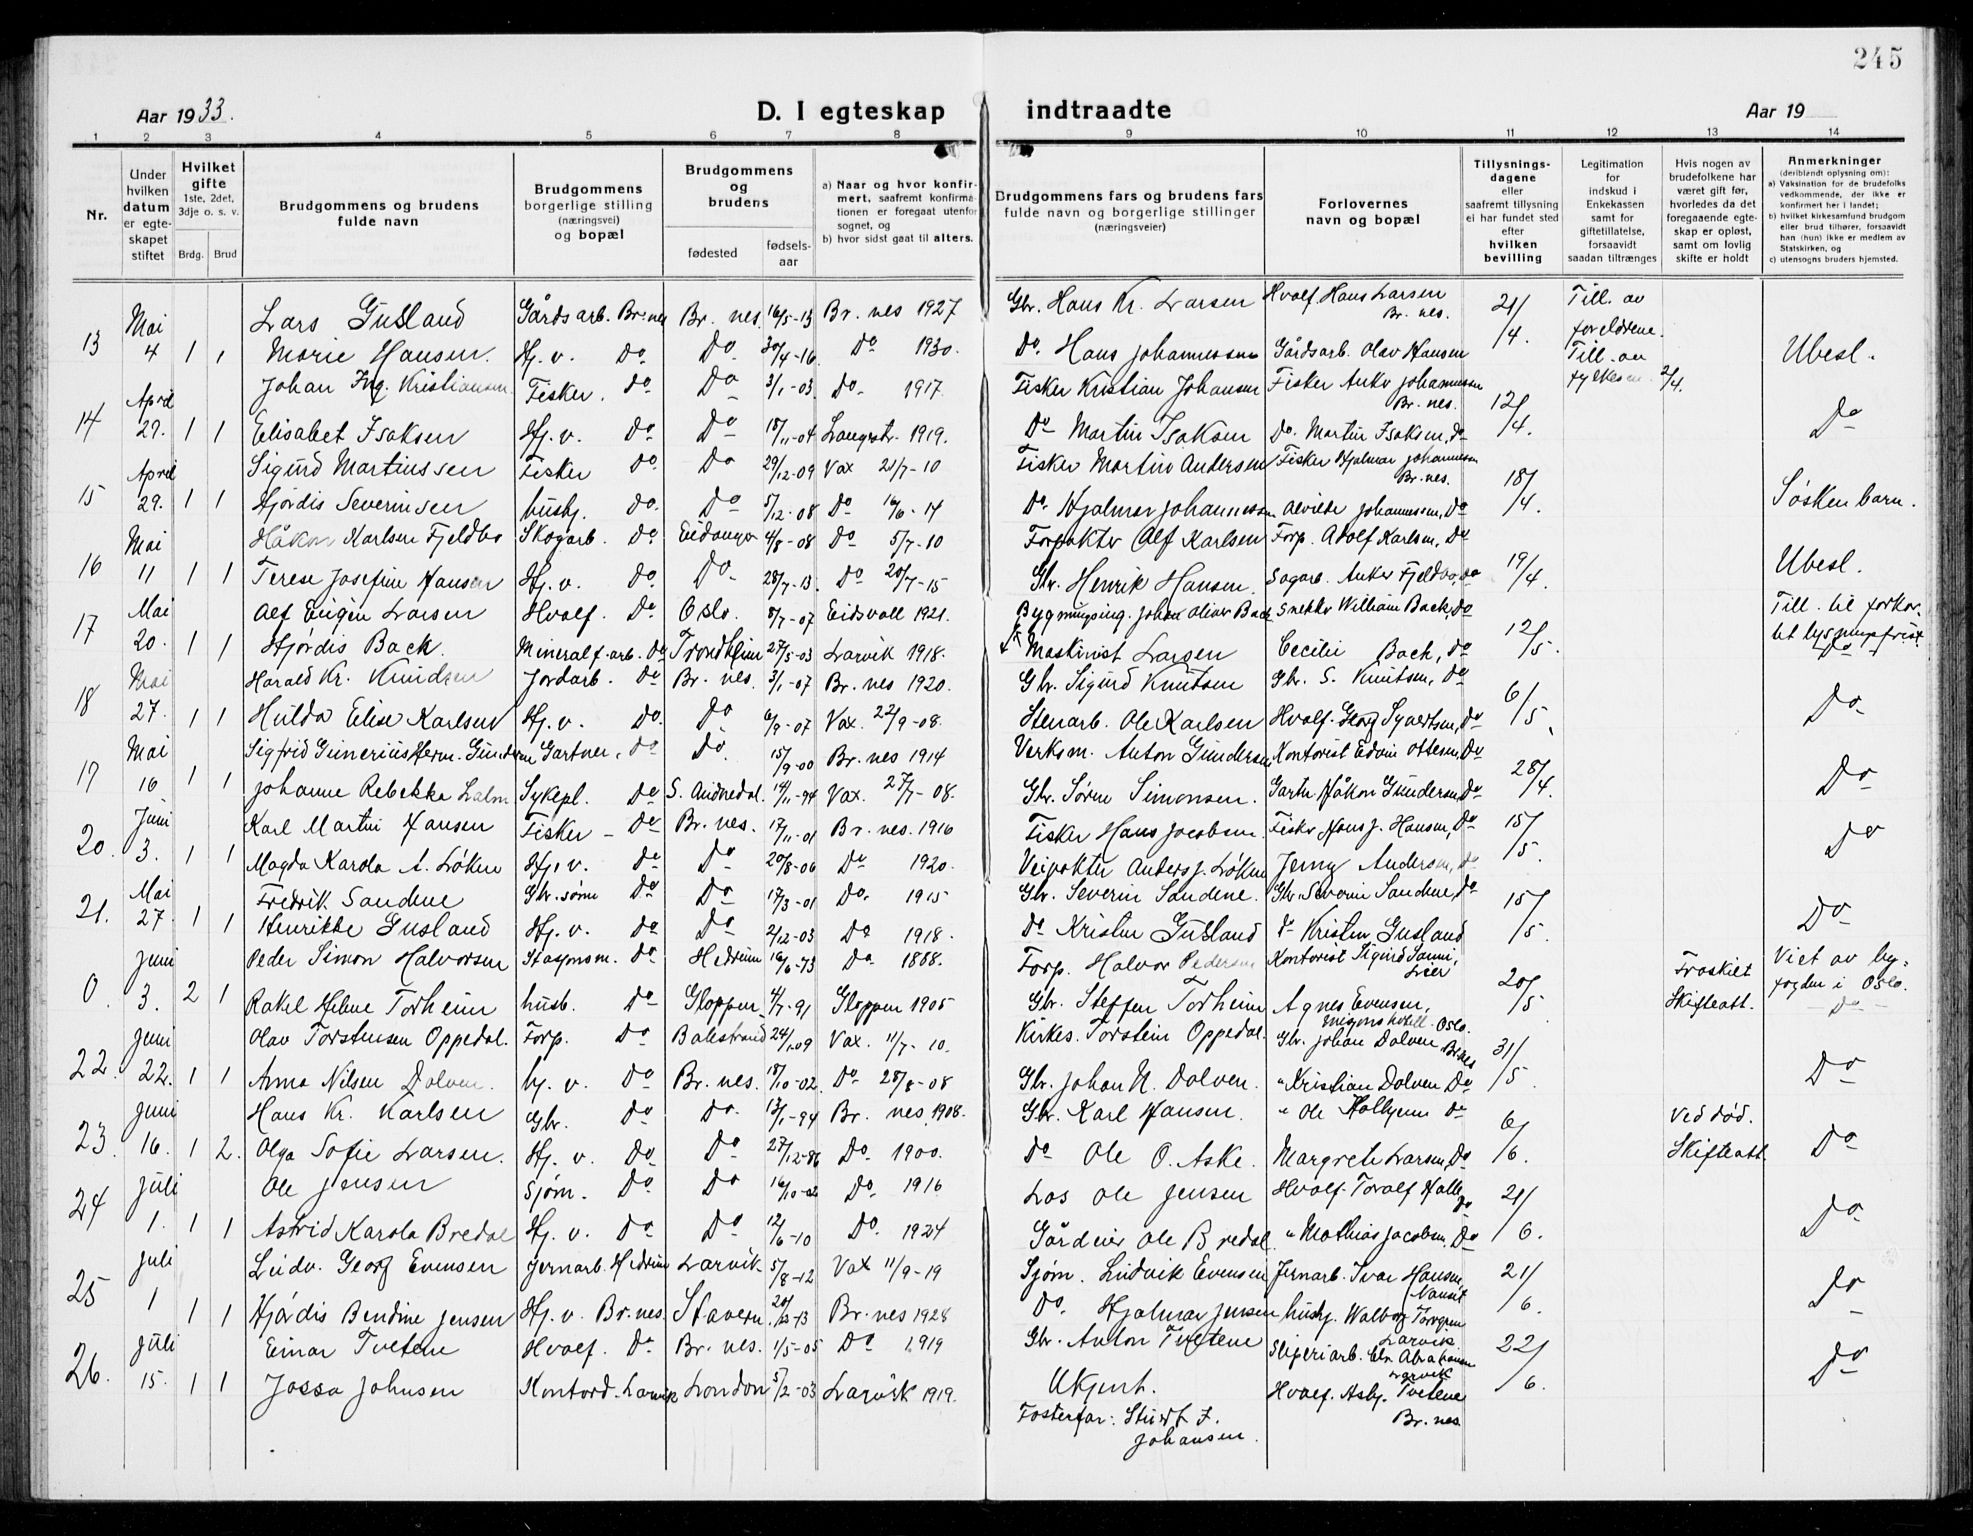 245
Aar 1933.
D. I egteskap indtraadte
Aar 19
1 2 3 4 5 6 7 8 9 10 11 12 13 14
Nr.
Under hvilken datum er egteskapet stiftet
Hvilket gifte 1ste, 2det, 3dje o. s. v.
Brdg. Brud
Brudgommens og brudens fulde navn
Brudgommens borgerlige stilling (næringsvei) og bopæl
Brudgommens og brudens
fødested
fødselsaar
a) Naar og hvor konfirmert, saafremt konfirmationen er foregaat utenfor sognet, og
b) hvor sidst gaat til alters.
Brudgommens fars og brudens fars fulde navn og borgerlige stillinger (næringsveier)
Forlovernes navn og bopæl
Tillysningsdagene eller saafremt tillysning ei har fundet sted efter hvilken bevilling
Legitimation for indskud i Enkekassen samt for giftetillatelse, forsaavidt saadan tiltrænges
Hvis nogen av brudefolkene har været gift før, hvorledes da det foregaaende egteskap er opløst, samt om lovlig skifte er holdt
Anmerkninger (deriblandt oplysning om):
a) Vaksination for de brudefolks vedkommende, der ikke er konfirmert her i landet;
b) hvilket kirkesamfund brudgom eller brud tilhører, forsaavidt han (hun) ikke er medlem av Statskirken, og
c) utensogns bruders hjemsted.
Mai Lars Gusland Gårdsarb. Br.nes Br. nes. 16/5-13 Br. nes 1927 Gbr. Hans Kr. Larsen Hvalf. Hans Larsen Br. nes. 21/4. Till. av foreldrene.
13 4 1 1 Marie Hansen. Hj. v. Do. Do. 30/4-16 Do 1930. Do. Hans Johannessen Gårdsarb. Olav Hansen Till. av fylkesm. 2/4. Ubesl.
April Johan Ing. Kristiansen Fisker. do Do 3/1-03 Do. 1917. Fisker Kristian Johansen Fisker Anker Johannessen Br. nes. 12/4.
14 29. 1 1 Elisabet Isaksen Hj. v. Do Do 18/11-04 Langestr. 1919. Do Martin Isaksen Do. Martin Isaksen, do Do
April Sigurd Martinssen Fisker do. Do 29/12-09 Vax 21/7-10 Fisker Martin Andersen Fisker Hjalmar Johannessen Br. nes. 18/4.
15 29. 1 1 Hjördis Severinsen hushj. do. Do 5/12-08 Do 16/6-14 Do. Hjalmar Johannessen Alvilde Johannessen, Do Søskenbarn.
Mai Håkon Karlsen Fjeldbo Skogarb. Do Eidanger 4/8-08 Do 5/7-10 Forpakter Alf Karlsen Forp. Adolf Karlsen, Do 19/4.
16 11 1 1 Terese Josefine Hansen Hj. v. do. Do. 28/7-13. Do 20/7-15 Gbr. Henrik Hansen. Sagarb. Anker Fjeldbo, do Ubesl.
Mai Alf Eugen Larsen Hvalf. Do Oslo. 8/7-07 Eidsvoll 1921. Bygningsing. Johan Oliver Back Snekker William Back, do 12/5. Till. til forkortet lysningsfrist
17 20. 1 1 Hjördis Back. Mineralf. arb. Do Trondheim 27/5-03 Larvik 1918. Maskinist Larsen Cecilie Back, do Do
Mai Harald Kr. Knudsen Jordarb. Do Br. nes. 3/1-07 Br. nes 1920. Gbr. Sigurd Knutsen Gbr. S. Knutsen, do 6/5.
18 27. 1 1 Hulda Elise Karlsen Hj. v. Do. Do 6/9-07 Vax. 22/9-08. Stenarb. Ole Karlsen Hvalf. Georg Syvertsen, do Do
Mai Sigfrid Gunerius Herm. Gundersen Gartner. do do. 15/9-00 Br. nes 1914 Verksm. Anton Gundersen Kontorist Edvin Ottesen, Do 28/4.
19 16 1 1 Johanne Rebekka Salm Sykepl. Do S. Audnedal. 14/11-94 Vax. 27/7-08. Gbr. Sören Simonsen. Gartn. Håkon Gundersen, do Do
Juni Karl Martin Hansen Fisker Do Br. nes. 17/11-01 Br. nes. 1916 Fisker Hans Jacobsen Fisker Hans J. Hansen, Do 15/5.
20. 3. 1 1 Magda Karola A. Løken Hj. v. do Do 20/8-06 Do 1920. Veivokter Anders J. Løken Jenny Andersen, do Do
Mai Fredrik Sandene Gbr. sønn Do Do 17/3-01 Do. 1915 Gbr. Severin Sandene. Gbr. Severin Sandene, do 15/5.
21. 27. 1 1 Henrikke Gusland Hj. v. do Do 2/12-03 Do 1918. Do Kristen Gusland do Kristen Gusland Do
Juni Peder Simon Halvorsen Stasjonsm. do Hedrum 16/6-73 Do 1888. Forp. Halvor Pedersen Kontorist Sigurd Sanni, Lier 20/5 Fraskilt Viet av byfogden i Oslo.
0. 3. 2 1 Rakel Helene Torheim husb. Do Gloppen 4/7-91 Gloppen 1905 Gbr. Steffen Torheim Agnes Evensen, Misjonshotell. Oslo. Skifteatt. Do
Juni Olav Torstensen Oppedal. Forp. Do Balestrand 24/1-09 Vax. 11/7-10. Kirkes. Torstein Oppedal. Gbr. Johan Dolven Br.nes 31/5
22. 22. 1 1 Anna Nilsen Dolven. hj. v. Do Br. nes. 18/10-02. Do 28/8-08 Gbr. Johan N. Dolven. " Kristian Dolven Do Do
Juni Hans Kr. Karlsen Gbr. Do do. 13/1-94 Br. nes, 1908. Gbr. Karl Hansen. " Ole Holhjem do 6/6. ved død.
23. 16. 1 2. Olga Sofie Larsen. Hj. v. Do Do 27/12-86 Do. 1900. Do Ole O. Aske. Margrete Larsen, Do Skifteatt. Do
Juli Ole Jensen Sjøm. Do Do 16/10-02 Do. 1916 Los Ole Jensen Hvalf. Toralf Halle do 21/6.
24 1. 1 1 Astrid Karola Bredal Hj. v. Do Do 12/6-10 Do. 1924 Gårdeier Ole Bredal. " Mathias Jacobsen, Do Do
Juli Ludv. Georg Evensen Jernarb. Hedrum Larvik 5/8-12 Vax 11/9-19 Sjøm. Ludvik Evensen Jernarb. Ivar Hansen, Nanset 21/6.
25 1 1 1 Hjördis Bendine Jensen Hj. v. Br. nes. Stavern 20/12-13 Br. nes 1928 Do. Hjalmar Jensen hushj. Walborg Torrgren Larvik Do
Juli Einar Tvetene Hvalf. Do Br. nes. 1/5-05 Do 1919 Gbr. Anton Tvetene Sliperiarb. Abrahamsen Larvik 22/6.
26. 15. 1 1 Jossa Johnsen Kontord. Larvik London 5/2-03 Larvik 1919. Ukjent. Hvalf. Asbj. Tvetene Br. nes Do
Fosterfar: J. Johansen.